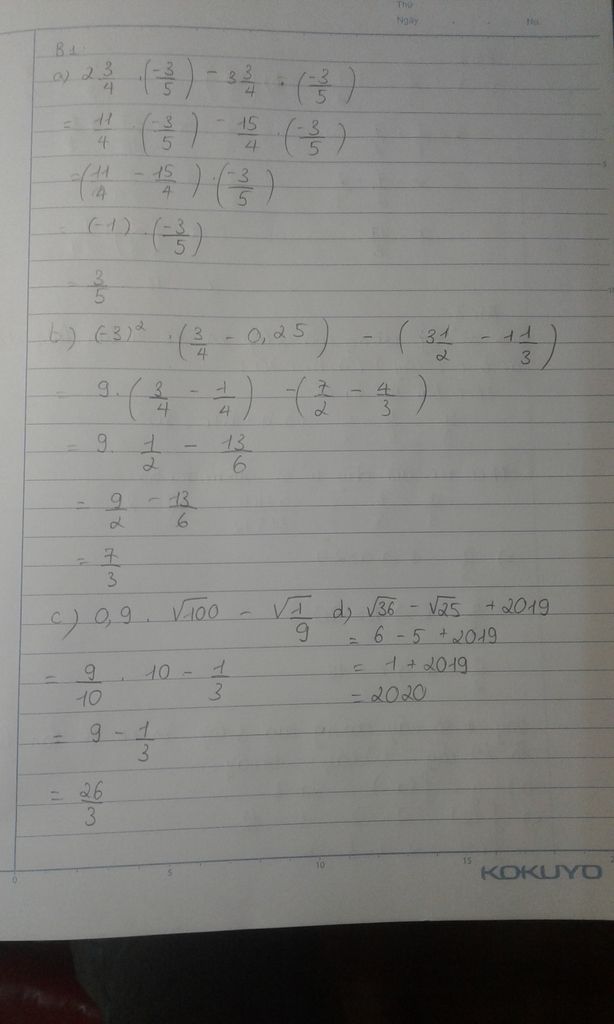 Thứ
Ngày . . No.
B1:
a) 2 3/4 . (-3/5) - 3 3/4 . (-3/5)
= 11/4 . (-3/5) - 15/4 . (-3/5)
= (11/4 - 15/4) . (-3/5)
= (-1) . (-3/5)
= 3/5
b) (-3)² . (3/4 - 0,25) - (3 1/2 - 1 1/3)
= 9 . (3/4 - 1/4) - (7/2 - 4/3)
= 9 . 1/2 - 13/6
= 9/2 - 13/6
= 7/3
c) 0,9 . √100 - √1/9
= 9/10 . 10 - 1/3
= 9 - 1/3
= 26/3
d) √36 - √25 + 2019
= 6 - 5 + 2019
= 1 + 2019
= 2020
0 5 10 15
KOKUYO